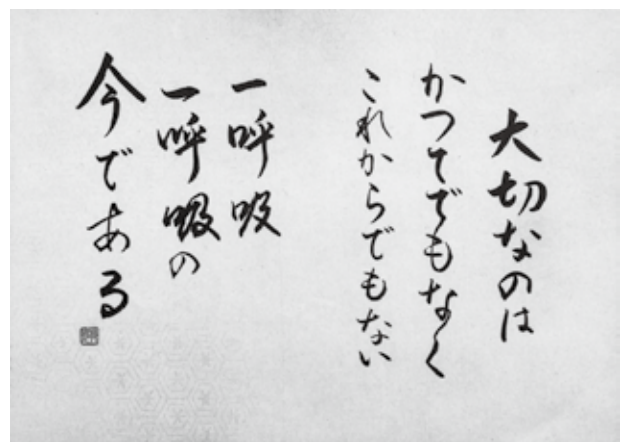 大切なのは
かつてでもなく
これからでもない
一呼吸
一呼吸の
今である